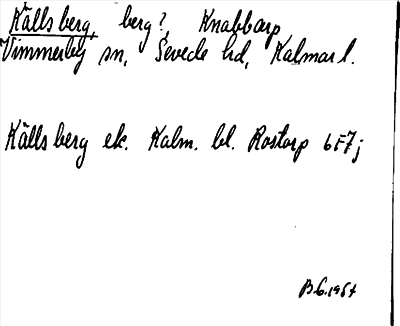 Källsberg, berg?, Knabbarp
Vimmerby sn, Sevede hd, Kalmar l.
Källsberg ek. Kalm. bl. Rostorp 6F7j
B.G. 1957